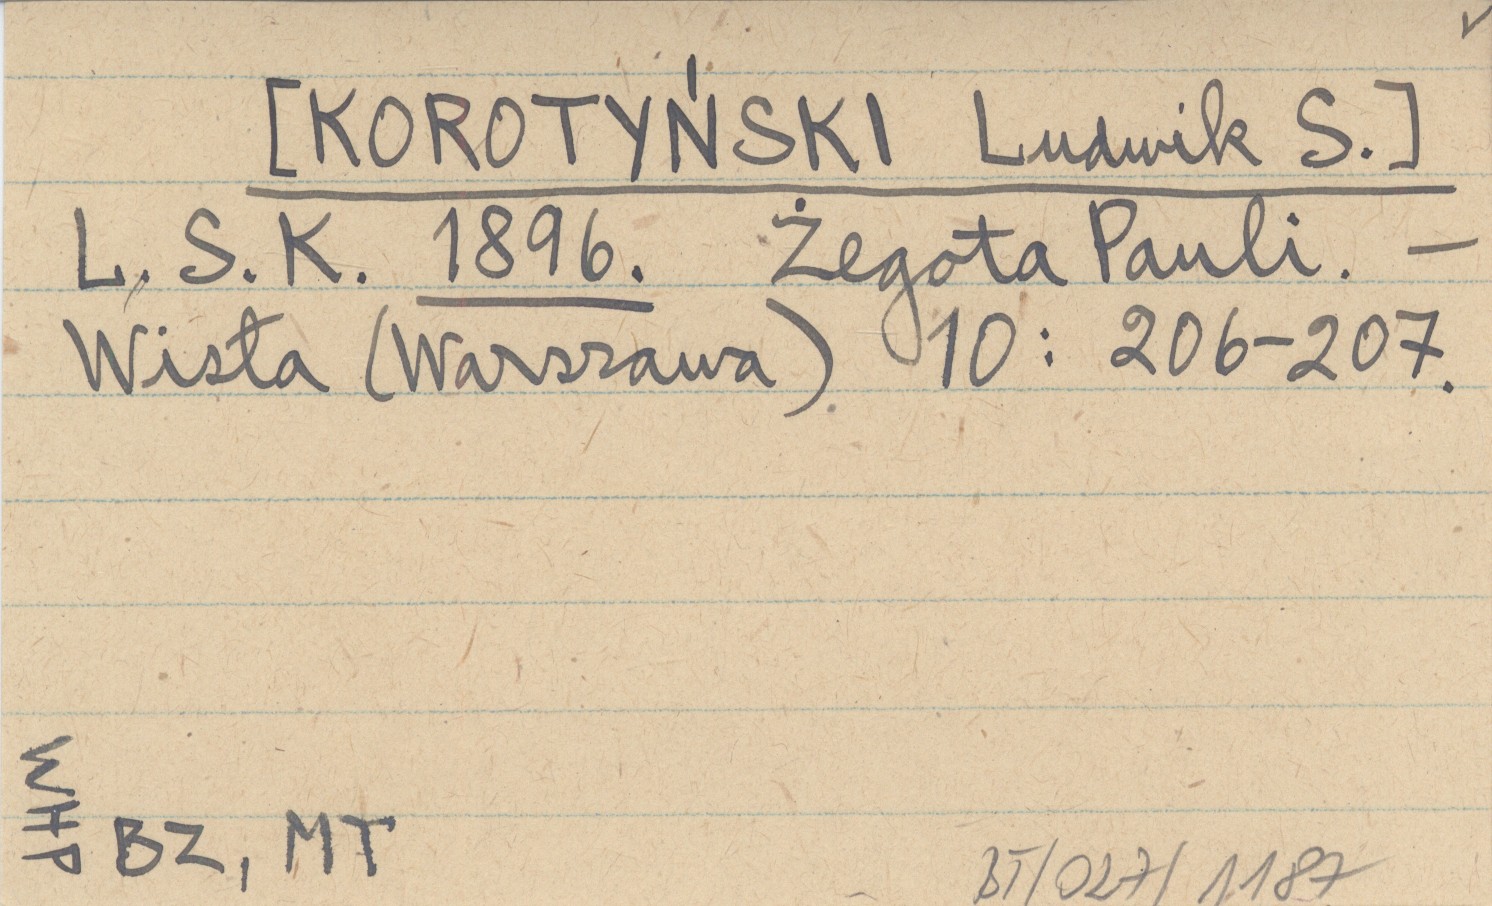 [KOROTYŃSKI Ludwik S.]
L. S. K. 1896. Żegota Pauli. —
Wisła (Warszawa) 10: 206-207.
BZ, MT
BT/027/1187